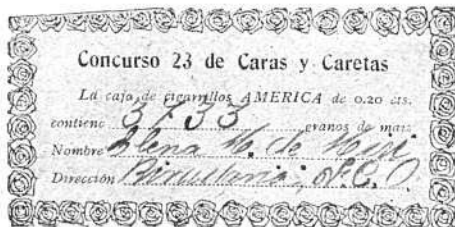 Concurso 23 de Caras y Caretas
La caja de cigarrillos AMERICA de 0.20 cts.
contiene 3733 granos de maiz
Nombre Elena M. de
Dirección F.C.O.